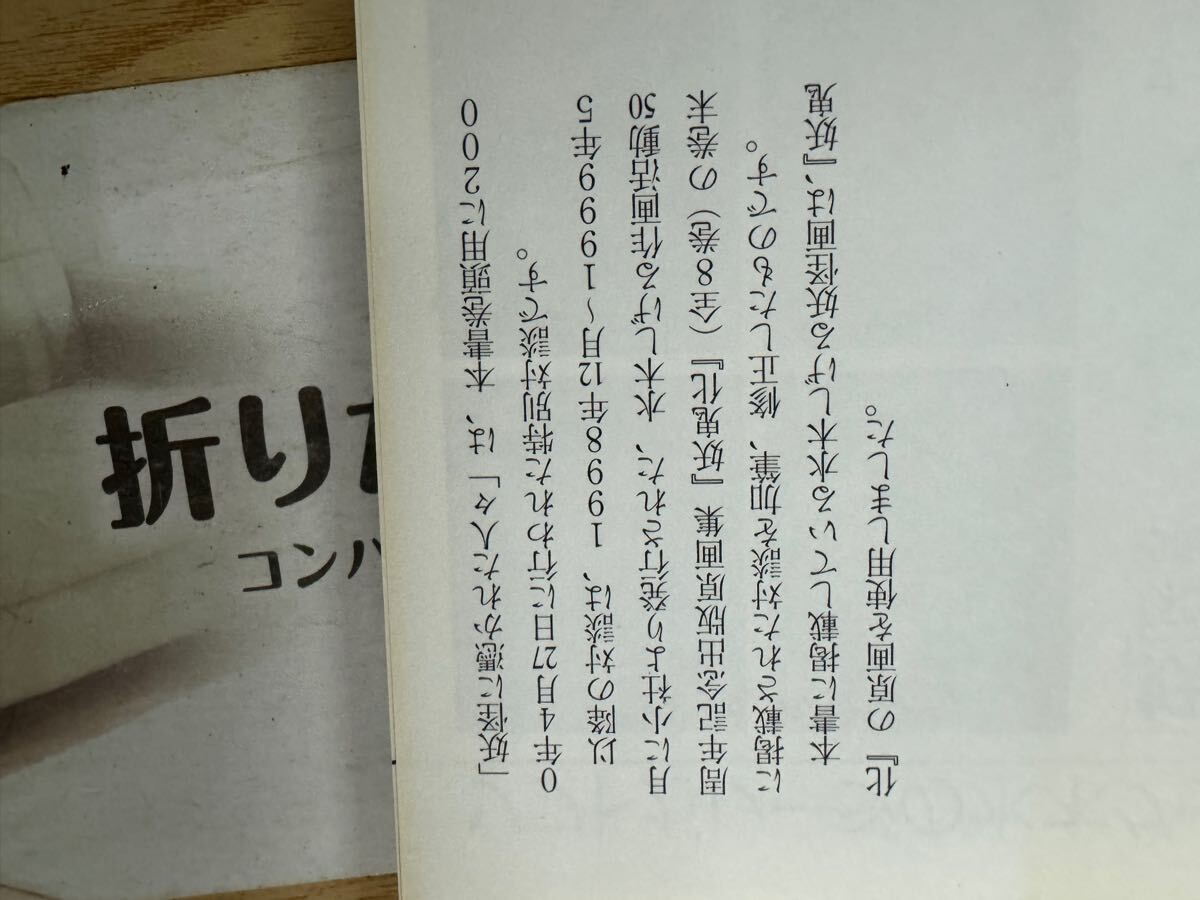 「妖怪に憑かれた人々」は、本書巻頭用に200
0年4月27日に行われた特別対談です。
以降の対談は、1998年12月〜1999年5
月に小社より発行された、水木しげる作画活動50
周年記念出版原画集『妖鬼化』（全8巻）の巻末
に掲載された対談を加筆、修正したものです。
本書に掲載している水木しげる妖怪画は、『妖鬼
化』の原画を使用しました。
折り
コン